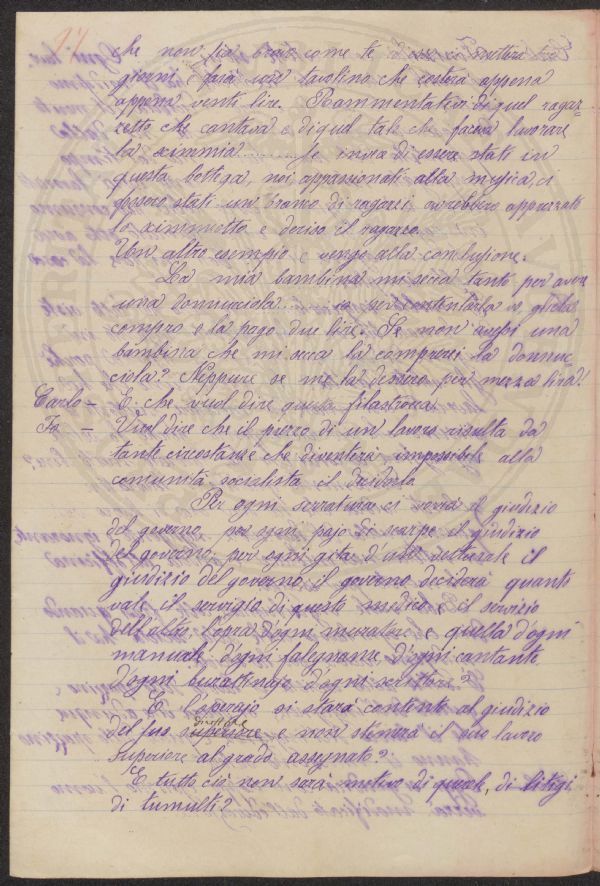 17
che non sia bravo come te di esse ci mettera tre
giorni e farà un tavolino che costerà appena
appena venti lire. Rammentativi di quel ragaz-
zetto che cantava e di quel tale che faceva lavorare
la scimmia......... Se invece di essere stati in
questa bottega, noi, appassionati alla musica, ci
fossero stati un branco di ragazzi avrebbero apprezzato
lo scimmiotto e deriso il ragazzo.
Un altro esempio e vengo alla conclusione.
La mia bambina mi secca tanto per avere
una donnucciola....... io per contentarla gliela
compro e la pago due lire. Se non avessi una
bambina che mi secca la comprerei la donnuc
ciola? Neppure se me la dessero per mezza lira!
Carlo – E che vuol dire questa filastrocca
Io – Vuol dire che il prezzo di un lavoro risulta da
tante circostanze che diventerà impossibile alla
comunità socialista il deciderlo
Per ogni serratura ci vorrà il giudizio
del governo, per ogni pajo di scarpe il giudizio
del governo, per ogni gita d'una vetturale il
giudizio del governo, il governo deciderà quanto
vale il servigio di questo medico e il servizio
dell'altro, l'opra d'ogni muratore e quella d'ogni
manuale, d'ogni falegname, d'ogni cantante
d'ogni burattinajo d'ogni scrittore?
E l'operajo si starà contento al giudizio
direttore
del suo superiore e non stimerà il suo lavoro
superiore al grado assegnato?
E tutto ciò non sarà motivo di querele, di litigi
di tumulti?